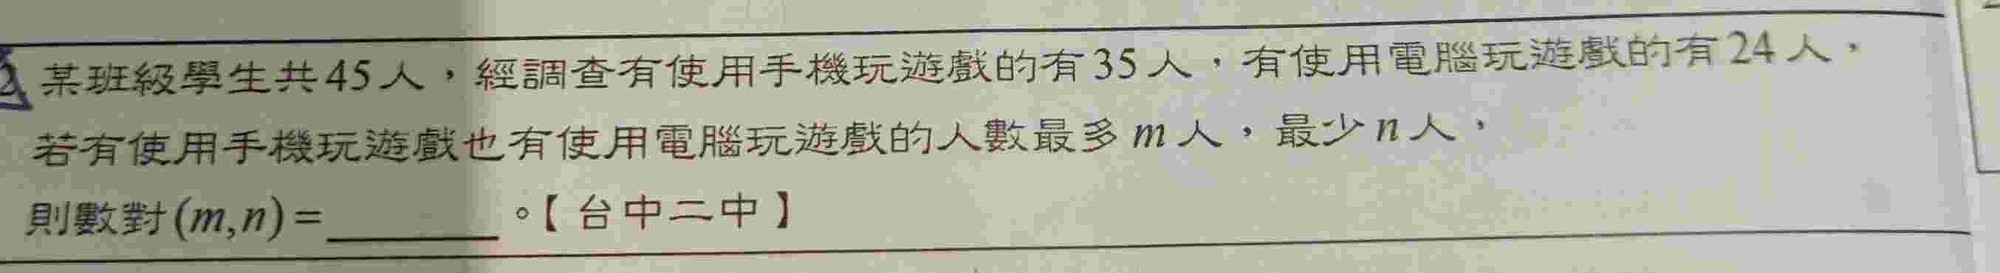 2 某班級學生共45人，經調查有使用手機玩遊戲的有35人，有使用電腦玩遊戲的有24人，
若有使用手機玩遊戲也有使用電腦玩遊戲的人數最多m人，最少n人，
則數對(m,n)=________。【台中二中】